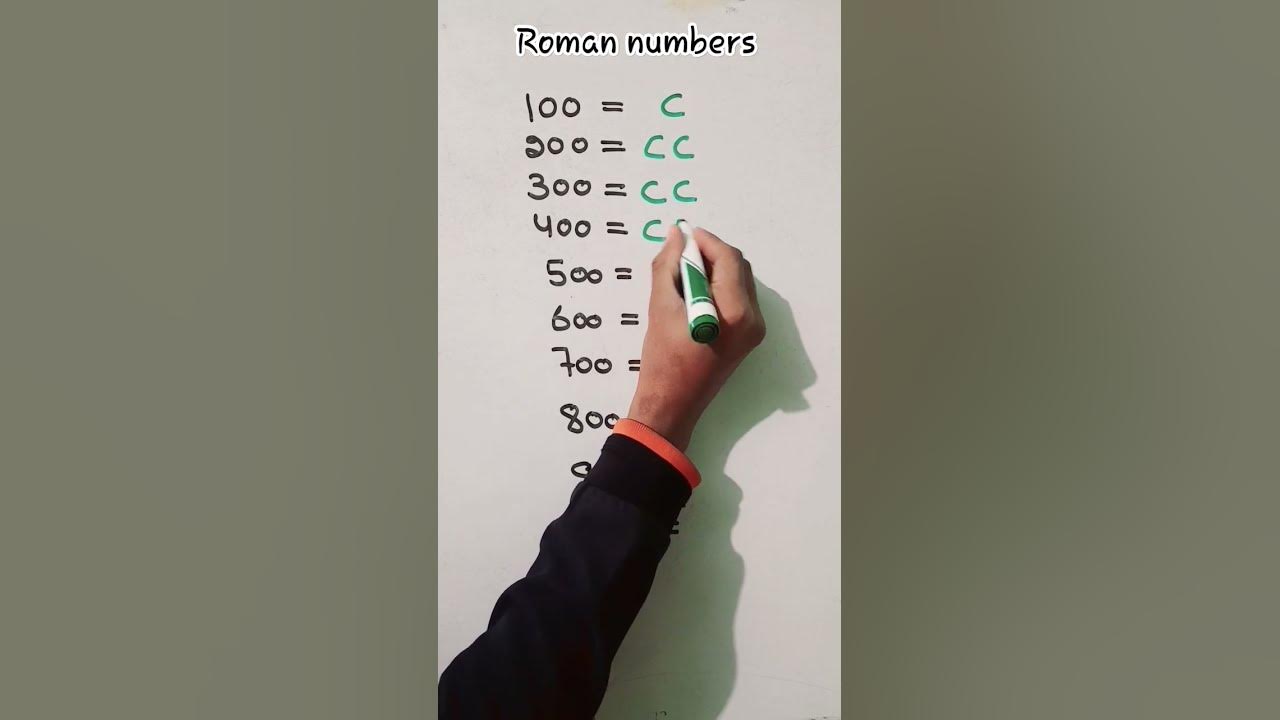 Roman numbers
100 = C
200 = CC
300 = CC
400 = C
500 =
600 =
700 =
800
=